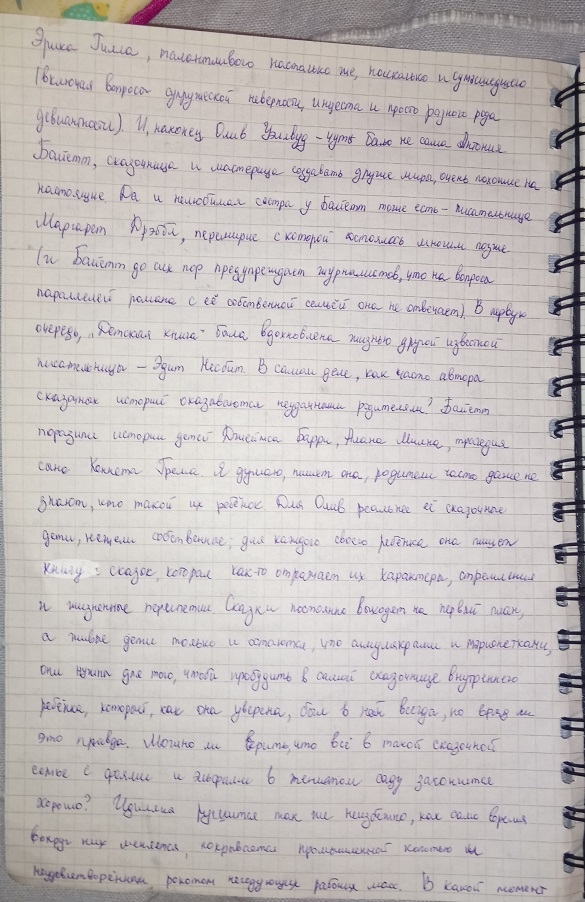 Эрика Гилла, талантливого настолько же, насколько и сумасшедшего
(включая вопросы супружеской неверности, инцеста и просто разного рода
девиантности). И, наконец Олив Уэллвуд - чуть было не сама Антония
Байетт, сказочница и мастерица создавать другие миры, очень похожие на
настоящие Да и нелюбимая сестра у Байетт тоже есть - писательница
Маргарет Дрэббл, перемирие с которой состоялось многим позже
(и Байетт до сих пор предупреждает журналистов, что на вопросы
параллелей романа с её собственной семьёй она не отвечает). В первую
очередь, „Детская книга" была вдохновлена жизнью другой известной
писательницы - Эдит Несбит. В самом деле, как часто автора
сказочных историй оказываются неудачными родителями? Байетт
поразили истории детей Джеймса Барри, Алана Милна, трагедия
сына Кеннета Грэма. Я думаю, пишет она, родители часто даже не
знают, кто такой их ребёнок Для Олив реальнее её сказочные
дети, нежели собственные; для каждого своего ребёнка она пишет
книгу сказок, которая как-то отражает их характеры, стремления
и жизненные перипетии. Сказки постоянно выходят на первый план,
а живые дети только и остаются, что симулякрами и марионетками,
они нужны для того, чтобы пробудить в самой сказочнице внутреннего
ребёнка, который, как она уверена, был в ней всегда, но вряд ли
это правда. Можно ли верить, что всё в такой сказочной
семье с феями и эльфами в саду закончится
хорошо? Идиллия рушится так же неизбежно, как само время
вокруг них меняется, покрывается промышленной копотью и
недовлетворённым, рокотом негодующих рабочих масс. В какой момент